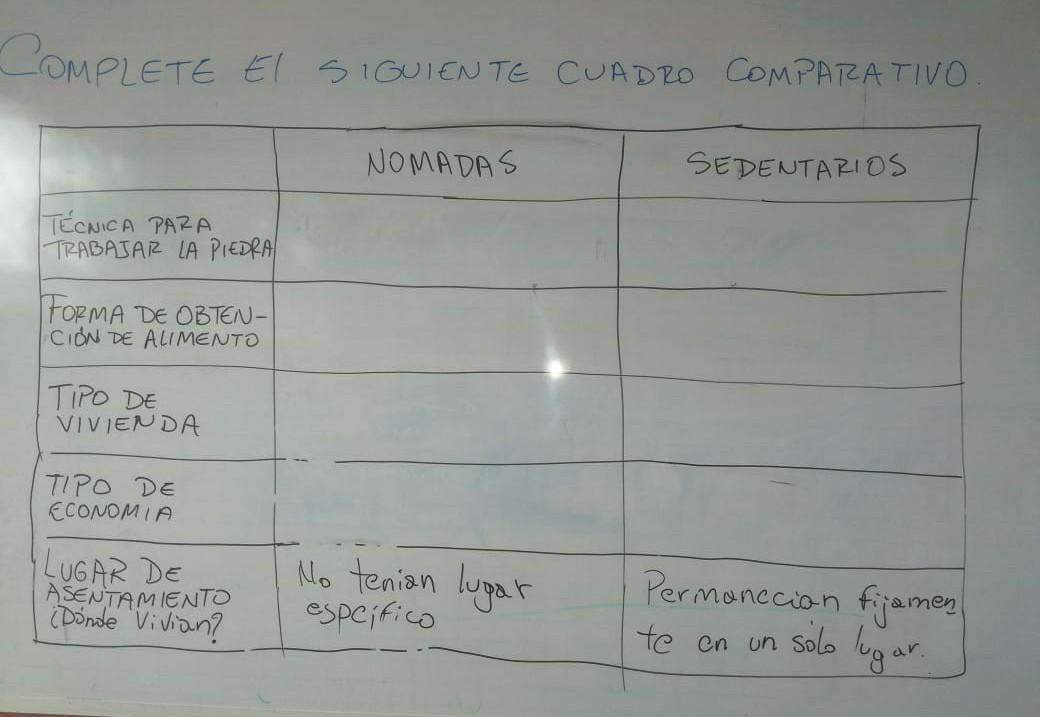 COMPLETE El SIGUIENTE CUADRO COMPARATIVO.
NOMADAS
SEDENTARIOS
TÉCNICA PARA
TRABAJAR LA PIEDRA
FORMA DE OBTEN-
CIÓN DE ALIMENTO
TIPO DE
VIVIENDA
TIPO DE
ECONOMIA
LUGAR DE
ASENTAMIENTO
¿Dónde Vivian?
No tenian lugar
espcífico
Permanecian fijamen
te en un sólo lugar.